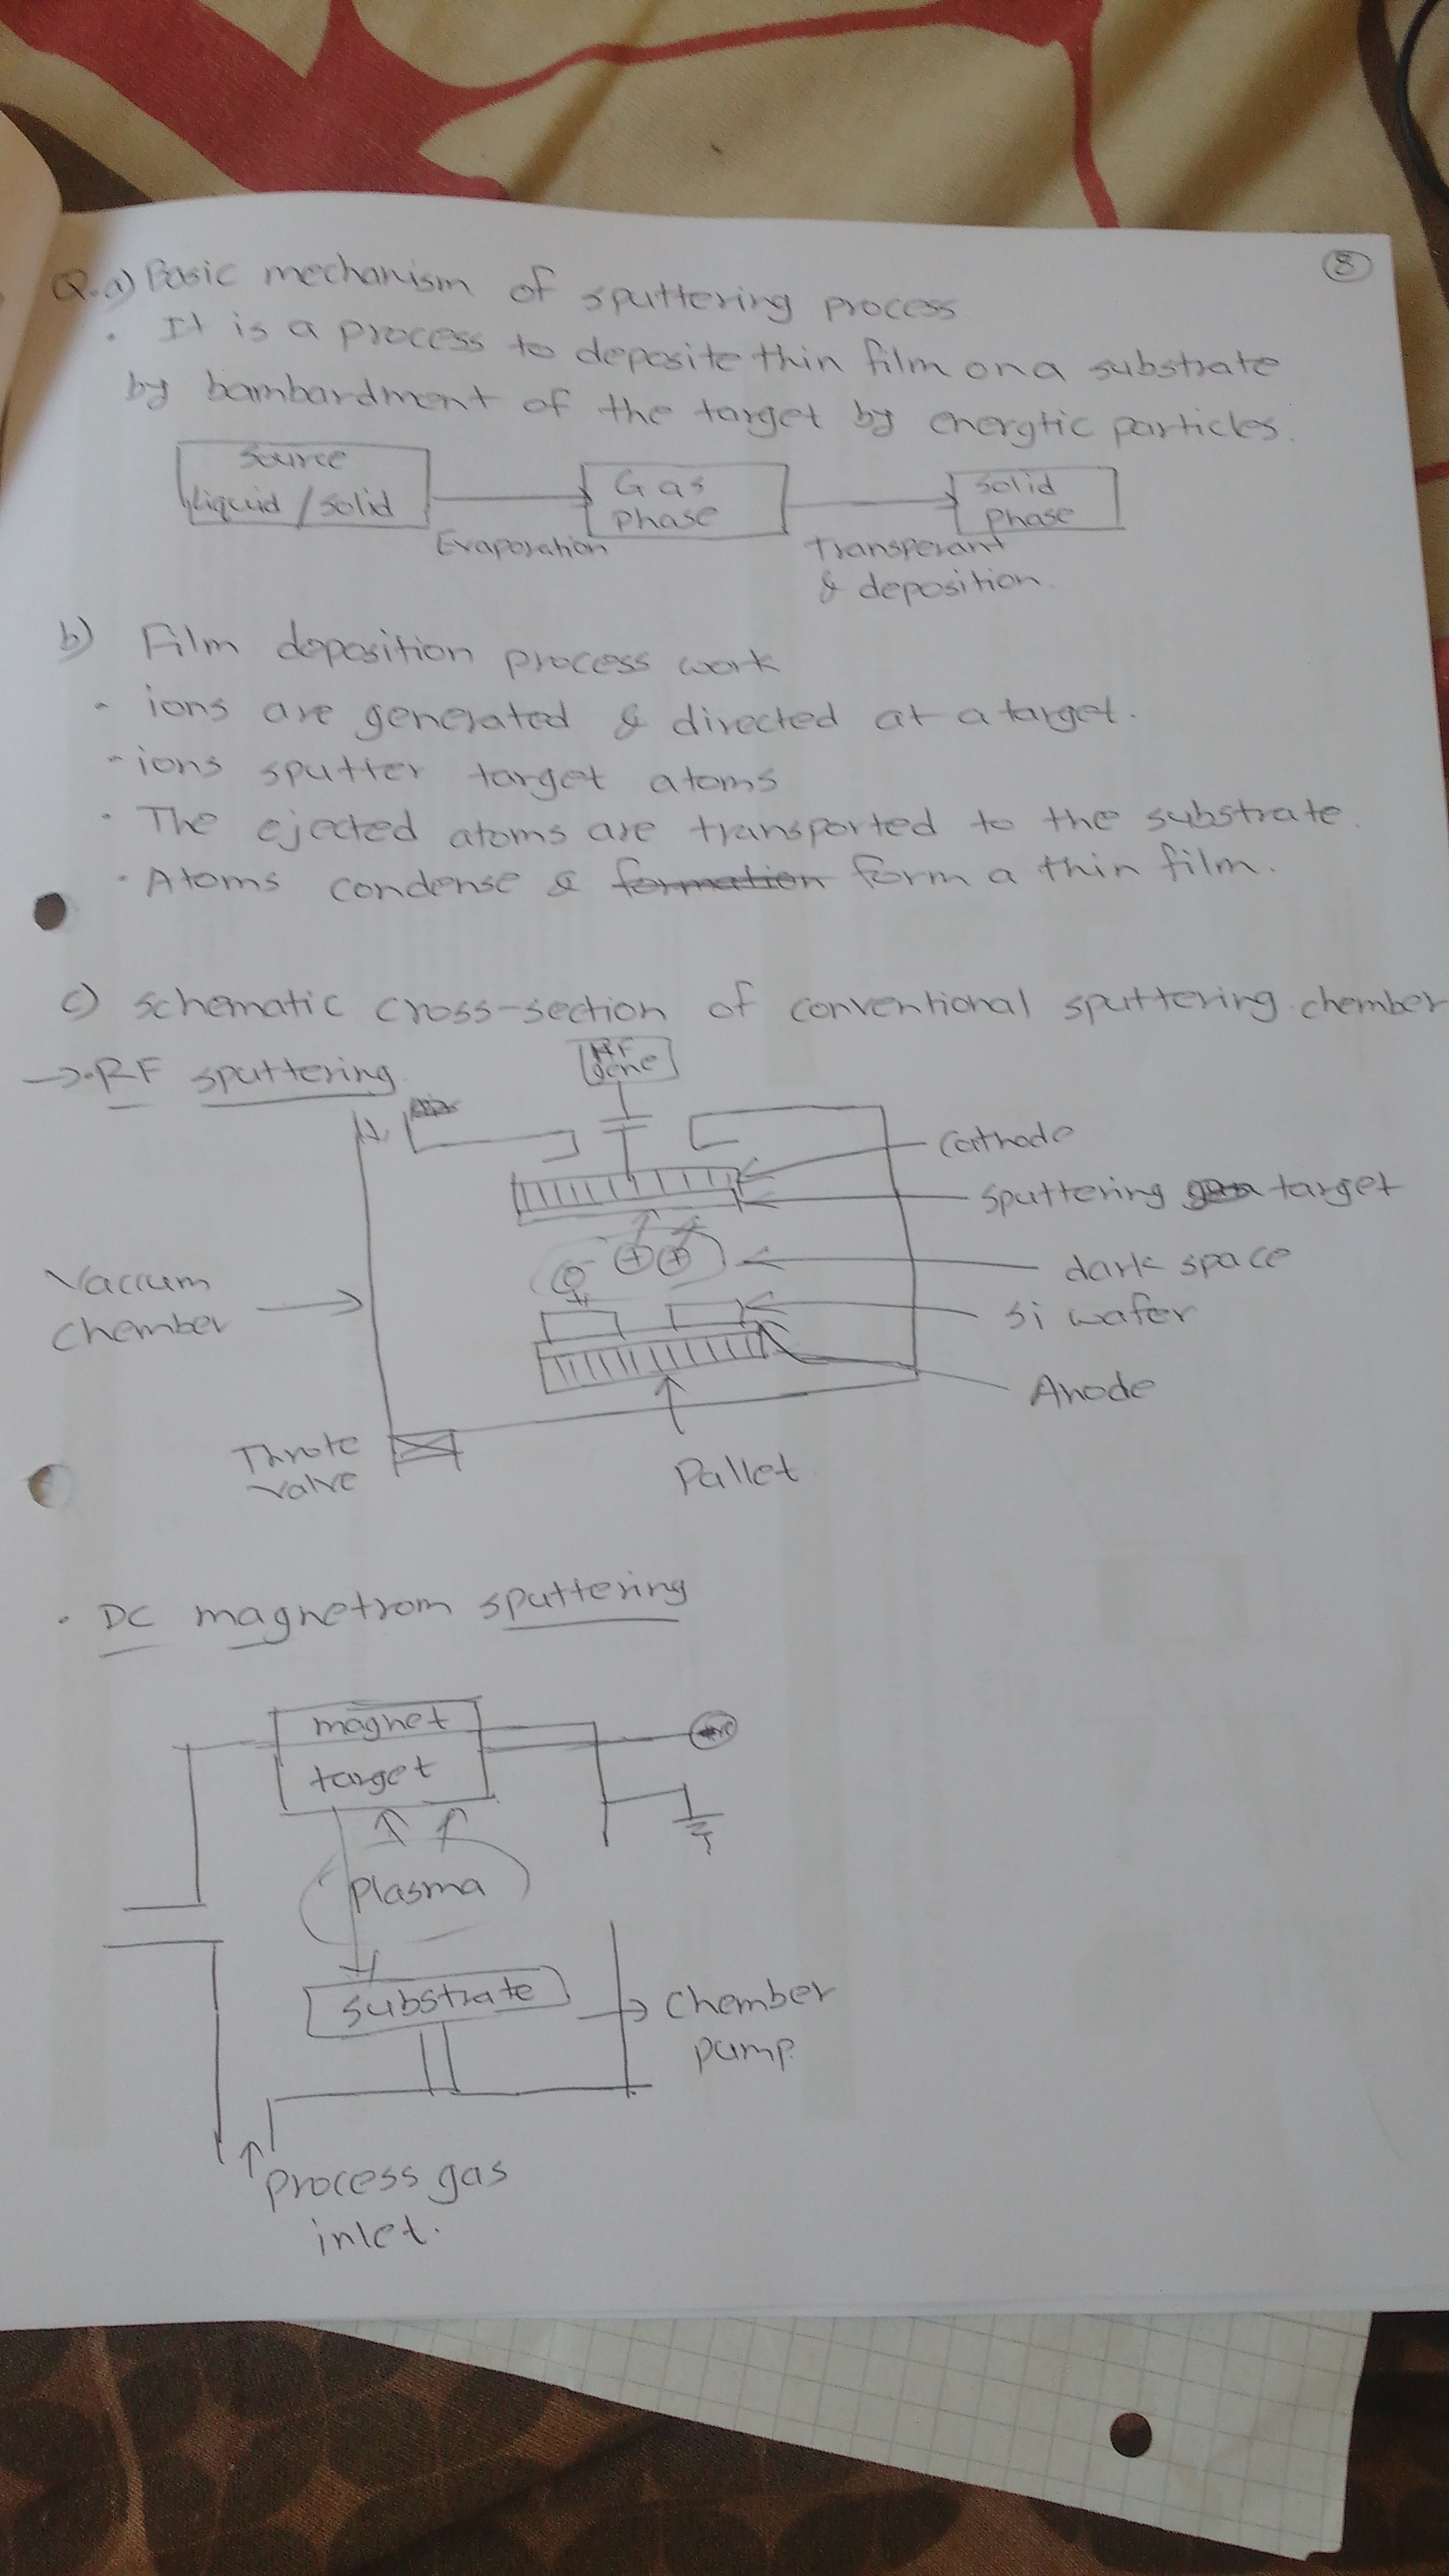 8
Q.a) Basic mechanism of sputtering process
· It is a process to deposite thin film on a substrate
by bambardment of the target by energtic particles.
Source
Liquid / solid
Gas
phase
solid
phase
Evaporation
Transperant
& deposition.
b) Film deposition process work
- ions are generated & directed at a target.
- ions sputter target atoms
· The ejected atoms are transported to the substrate.
· Atoms condense & formation form a thin film.
c) schematic cross-section of conventional sputtering chember
→ · RF sputtering
gene
cathode
sputtering target
dark space
Si wafer
Anode
Vaccum
chember
Throte
valve
Pallet
· DC magnetrom sputtering
magnet
target
plasma
substrate
chember
pump.
process gas
inlet.